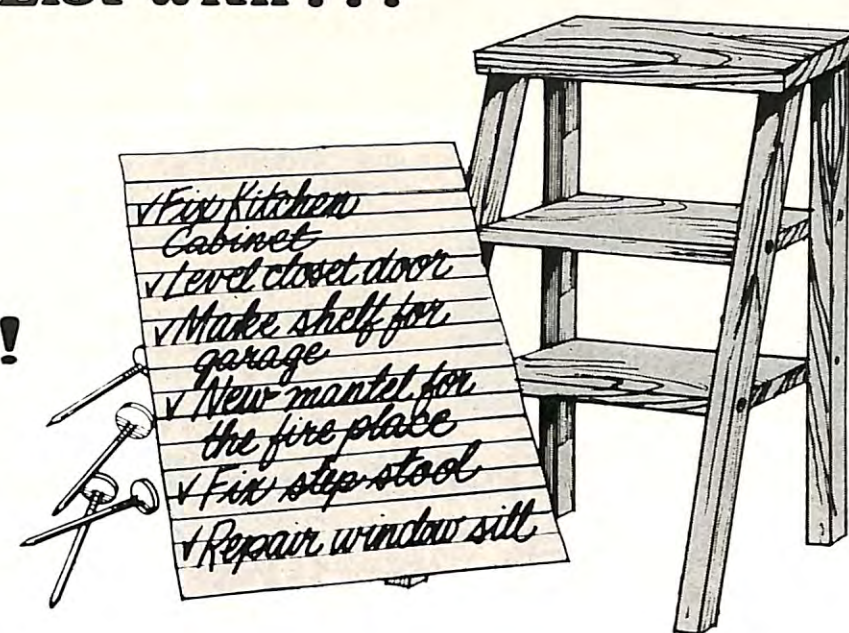 !
✓Fix Kitchen
Cabinet
✓Level closet door
✓Make shelf for
garage
✓New mantel for
the fire place
✓Fix step stool
✓Repair window sill